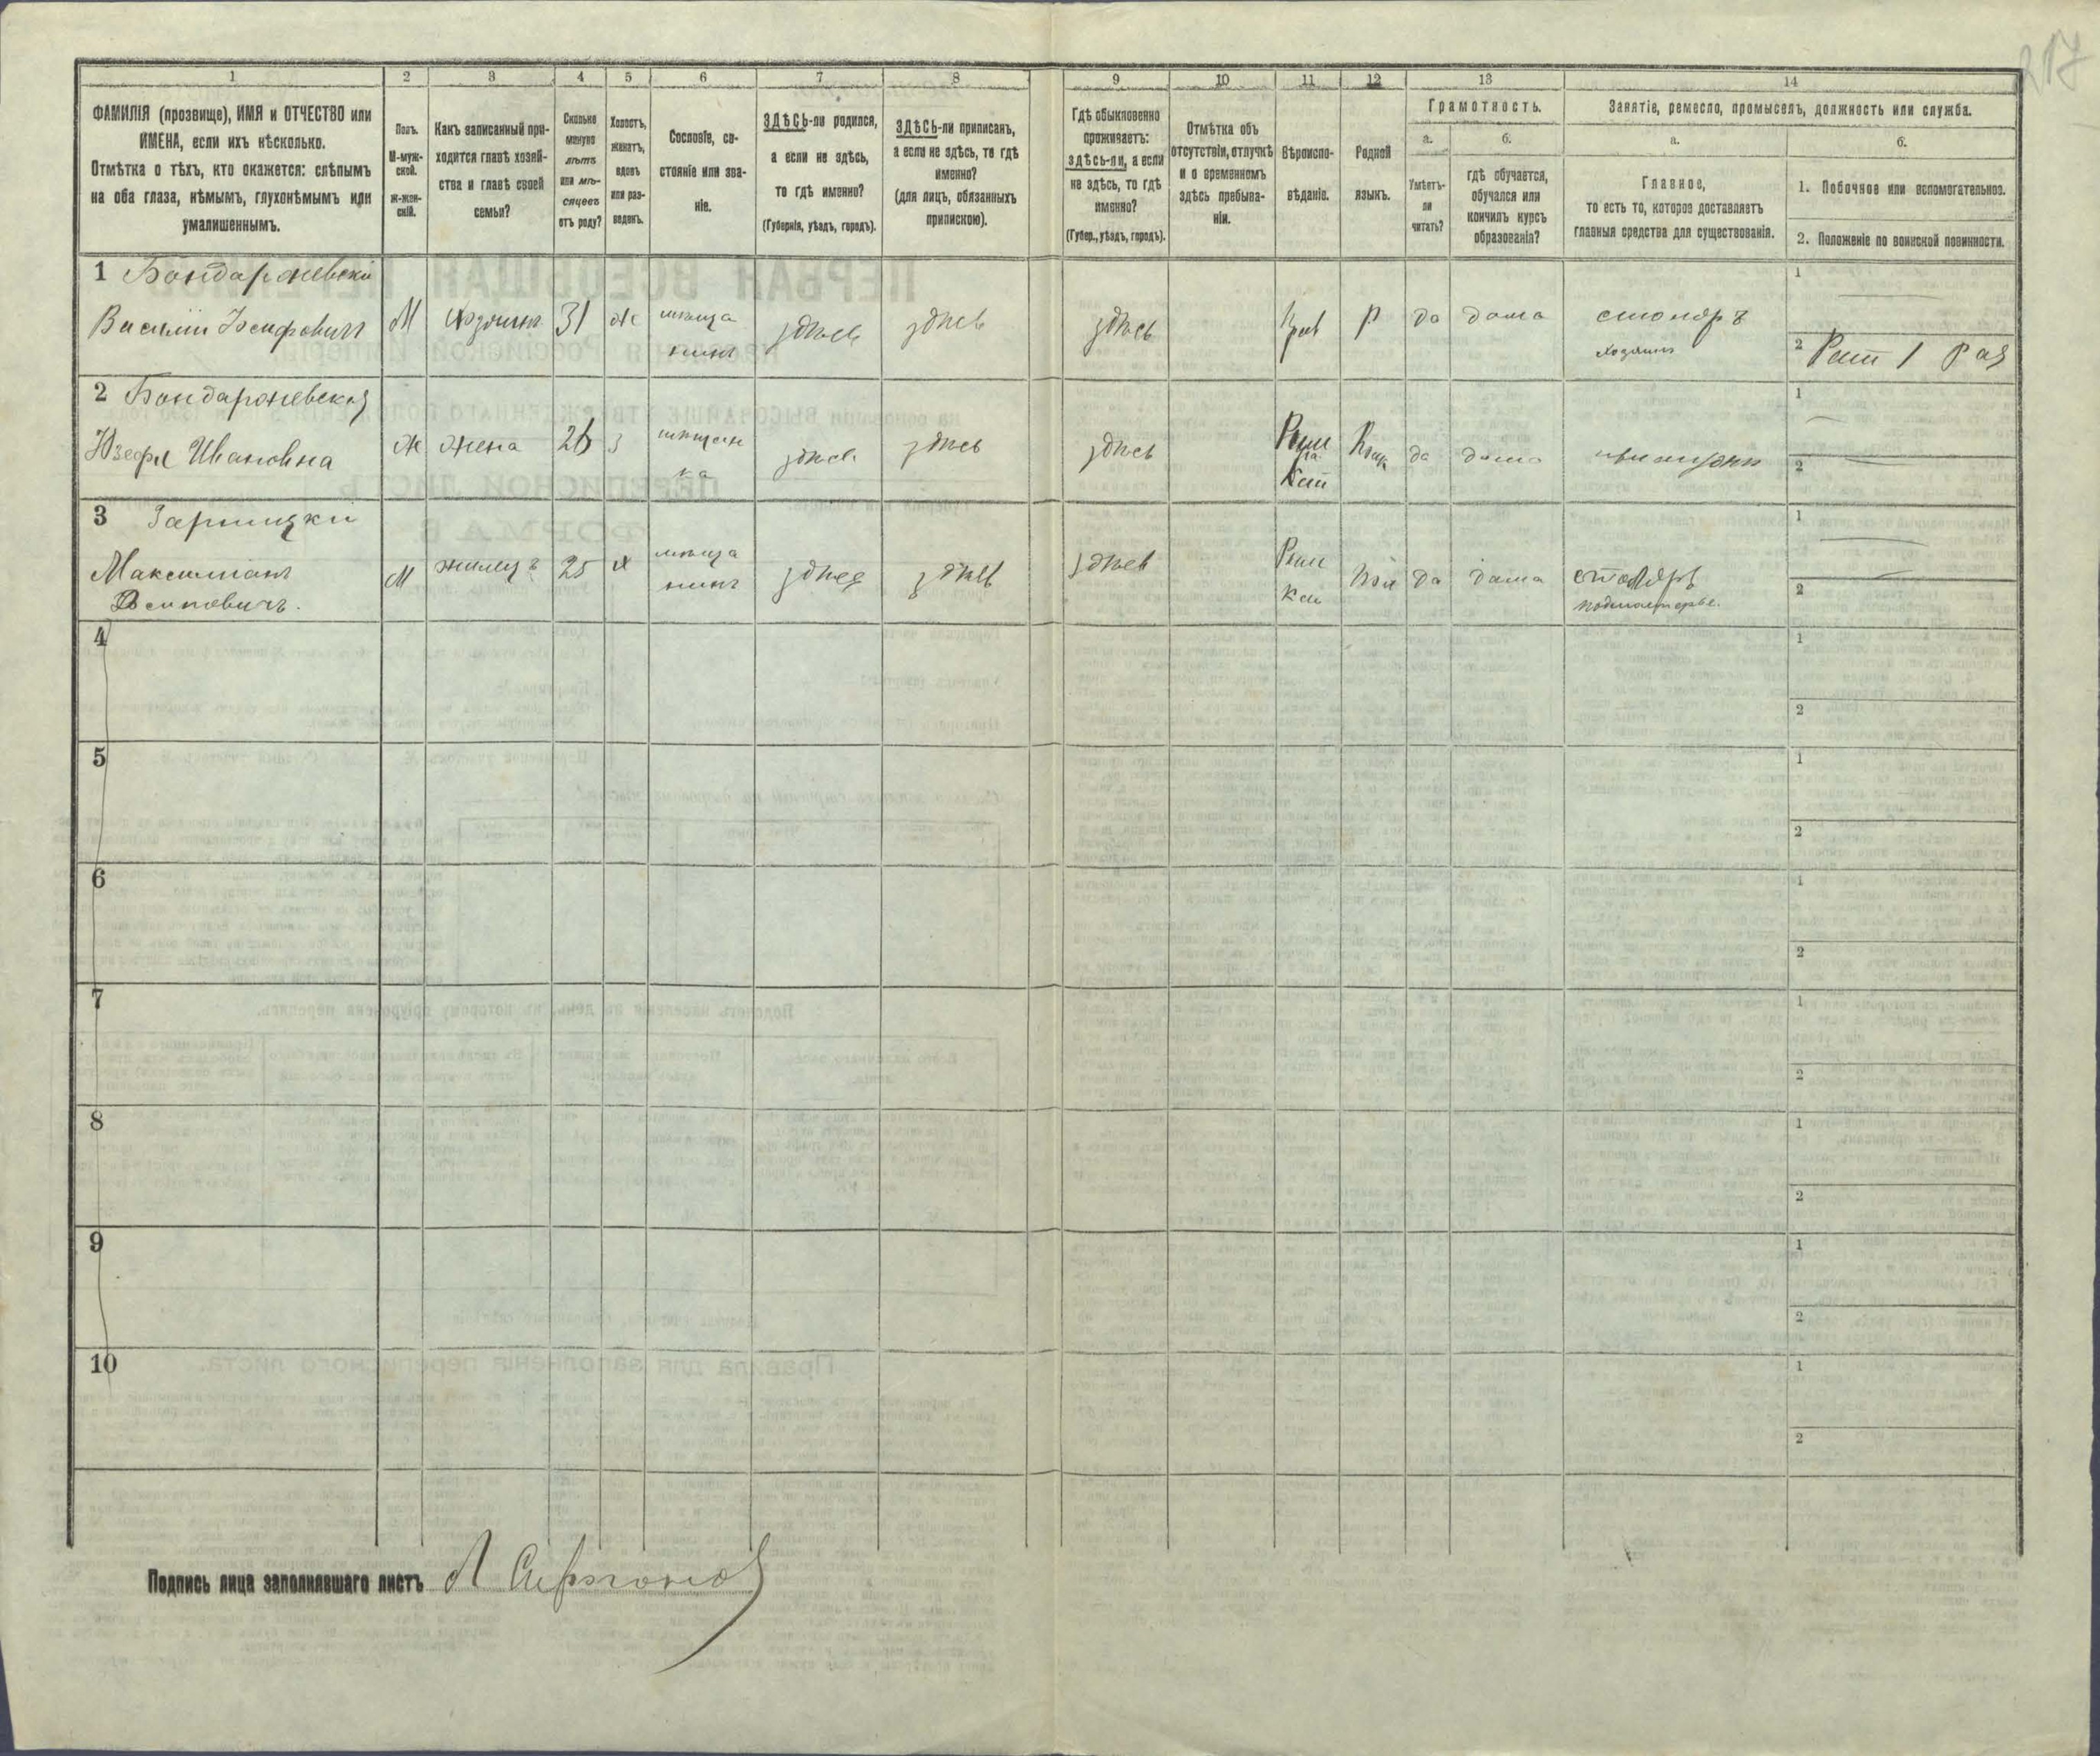 217
1 2 3 4 5 6 7 8 9 10 11 12 13 14
ФАМИЛІЯ (прозвище), ИМЯ и ОТЧЕСТВО или
ИМЕНА, если ихъ нѣсколько.
Отмѣтка о тѣхъ, кто окажется: слѣпымъ
на оба глаза, нѣмымъ, глухонѣмымъ или
умалишеннымъ.
Полъ.
М-муж-
ской.
Ж-жен-
скій.
Какъ записанный при-
ходится главѣ хозяй-
ства и главѣ своей
семьи?
Сколько
минуло
лѣтъ
или мѣ-
сяцевъ
отъ роду?
Холостъ,
женатъ,
вдовъ
или раз-
веденъ.
Сословіе, со-
стояніе или зва-
ніе.
ЗДѢСЬ-ли родился,
а если не здѣсь,
то гдѣ именно?
(Губернія, уѣздъ, городъ).
ЗДѢСЬ-ли приписанъ,
а если не здѣсь, то гдѣ
именно?
(для лицъ, обязанныхъ
припискою).
Гдѣ обыкновенно
проживаетъ:
здѣсь-ли, а если
не здѣсь, то гдѣ
именно?
(Губер., уѣздъ, городъ).
Отмѣтка объ
отсутствіи, отлучкѣ
и о временномъ
здѣсь пребыва-
ніи.
Вѣроиспо-
вѣданіе.
Родной
языкъ.
Грамотность.
а.
Умѣетъ-
ли
читать?
б.
гдѣ обучается,
обучался или
кончилъ курсъ
образованія?
Занятіе, ремесло, промыселъ, должность или служба.
а.
Главное,
то есть то, которое доставляетъ
главныя средства для существованія.
б.
1. Побочное или вспомогательное.
2. Положеніе по воинской повинности.
1 Бондаржевскій
Василій Іосифовичъ
М
хозяинъ
31
ж
мѣща
нинъ
здѣсь
здѣсь
здѣсь
Прав
Р
да
дома
столяръ
хозяинъ
1
2 Рат 1 раз
2 Бондаржевская
Юзефа Ивановна
Ж
жена
26
з
мѣщан
ка
здѣсь
здѣсь
здѣсь
Рим
Кат
Пол
да
дома
при мужѣ
1
2
3
Максимилианъ
Осиповичъ.
М
жилецъ
25
х
мѣща
нинъ
здѣсь
здѣсь
здѣсь
Рим
Кат
Пол
да
дома
столяръ
подмастерье.
1
2
4
1
2
5
1
2
6
1
2
7
1
2
8
1
2
9
1
2
10
1
2
Подпись лица заполнявшаго листъ